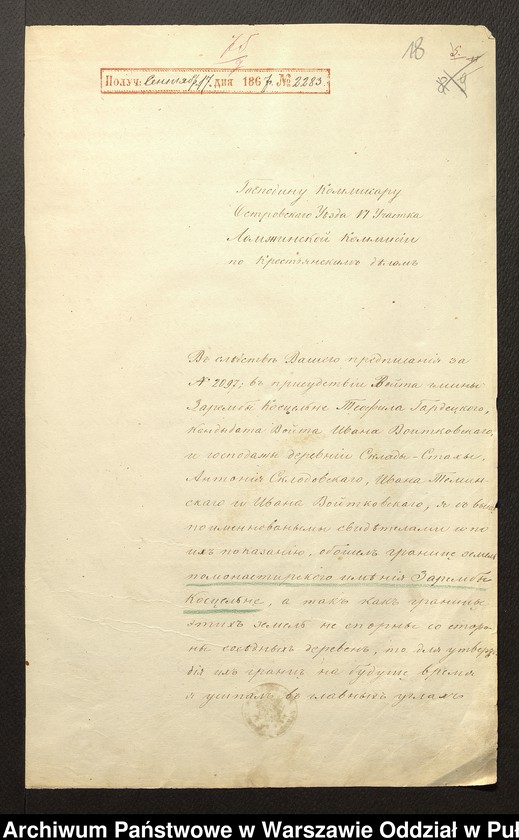 18
Получ. Сентября 17 дня 1867 № 2283
Господину Коммисару
Островскаго Уѣзда VI Участка
Ломжинской Коммисіи
по Крестьянскимъ дѣламъ
Въ слѣдствѣ Вашего предписанія за
№ 2097, въ присудствіи Войта гмины
Зарембы Косцельне Теофила Гардецкого,
Кандидата Войта Ивана Войтковскаго,
и господами деревніи Склады-Сталы,
Антонія Склодовскаго, Ивана Томин-
скаго и Ивана Войтковскаго, я съ выше
поименноваными свидѣтелами и по
ихъ показанію, обошелъ границе земел
помонастирского имѣнія Зарембы
Косцельне, а такъ какъ границы
этихъ земель не спорные со сторо-
ны сосѣдныхъ деревень, то для утверж-
дія ихъ границ на будуще время
я усипалъ въ главныхъ углахъ
Archiwum Państwowe w Warszawie Oddział w Puł